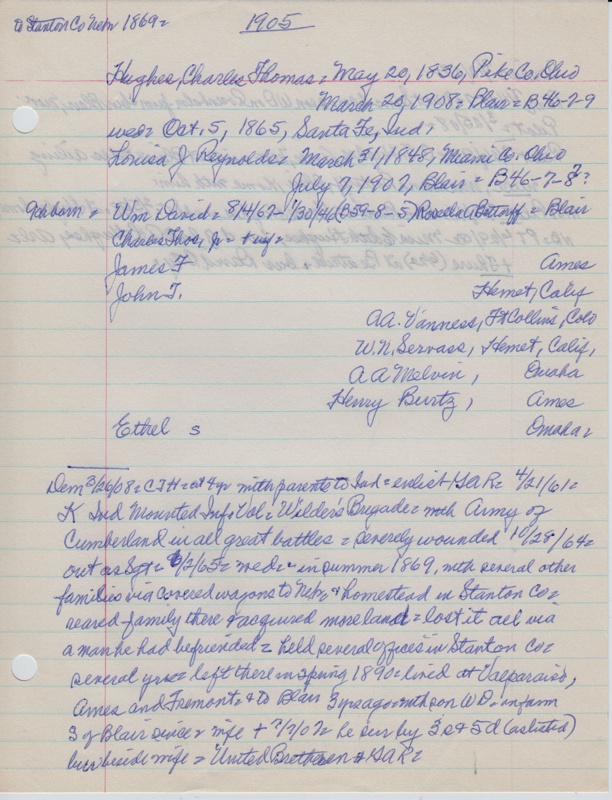 to Stanton Co Nebr 1869=
1905
Hughes, Charles Thomas = May 20, 1836, Pike Co, Ohio
March 20, 1908 = Blair = B46-7-9
wed = Oct. 5, 1865, Santa Fe, Ind,
Louisa J. Reynolds = March 31, 1848, Miami Co. Ohio
July 7, 1907, Blair = B46-7-8??
9ch born = Wm David = 8/4/67- 1/30/46 (B59-8-5) Rosella = Blair
Charles Thos, Jr =
James F Ames
John T. Hemet, Calif
AA. Vanness, Ft Collins, Colo
W.N. Servass, Hemet, Calif,
AA Melvin, Omaha
Henry Burtz, Ames
Ethel s Omaha =
Dem 3/26/08 = CTH = at 4yr with parents to Ind = enlist = 4/21/61 =
K Ind Mounted Inf. Vol = Wilder's Brigade = with Army of
Cumberland in all great battles = severely wounded 10/28/64 =
out as Sgt = 6/2/65 = wed = in summer 1869, with several other
families via covered wagons to Nebr, & homestead in Stanton Co =
reared family there & acquired more land = lost it all via
a man he had befriended = held several offices in Stanton Co =
several yrs = left there in spring 1890 = lived at Valparaiso,
Ames and Fremont = & to Blair 3 yrs ago = with son W D = in farm
3 of Blair since = wife + 7/7/07 = he sur by 3 s & 5 d (as listed)
bur beside wife = United Brethern & GAR =